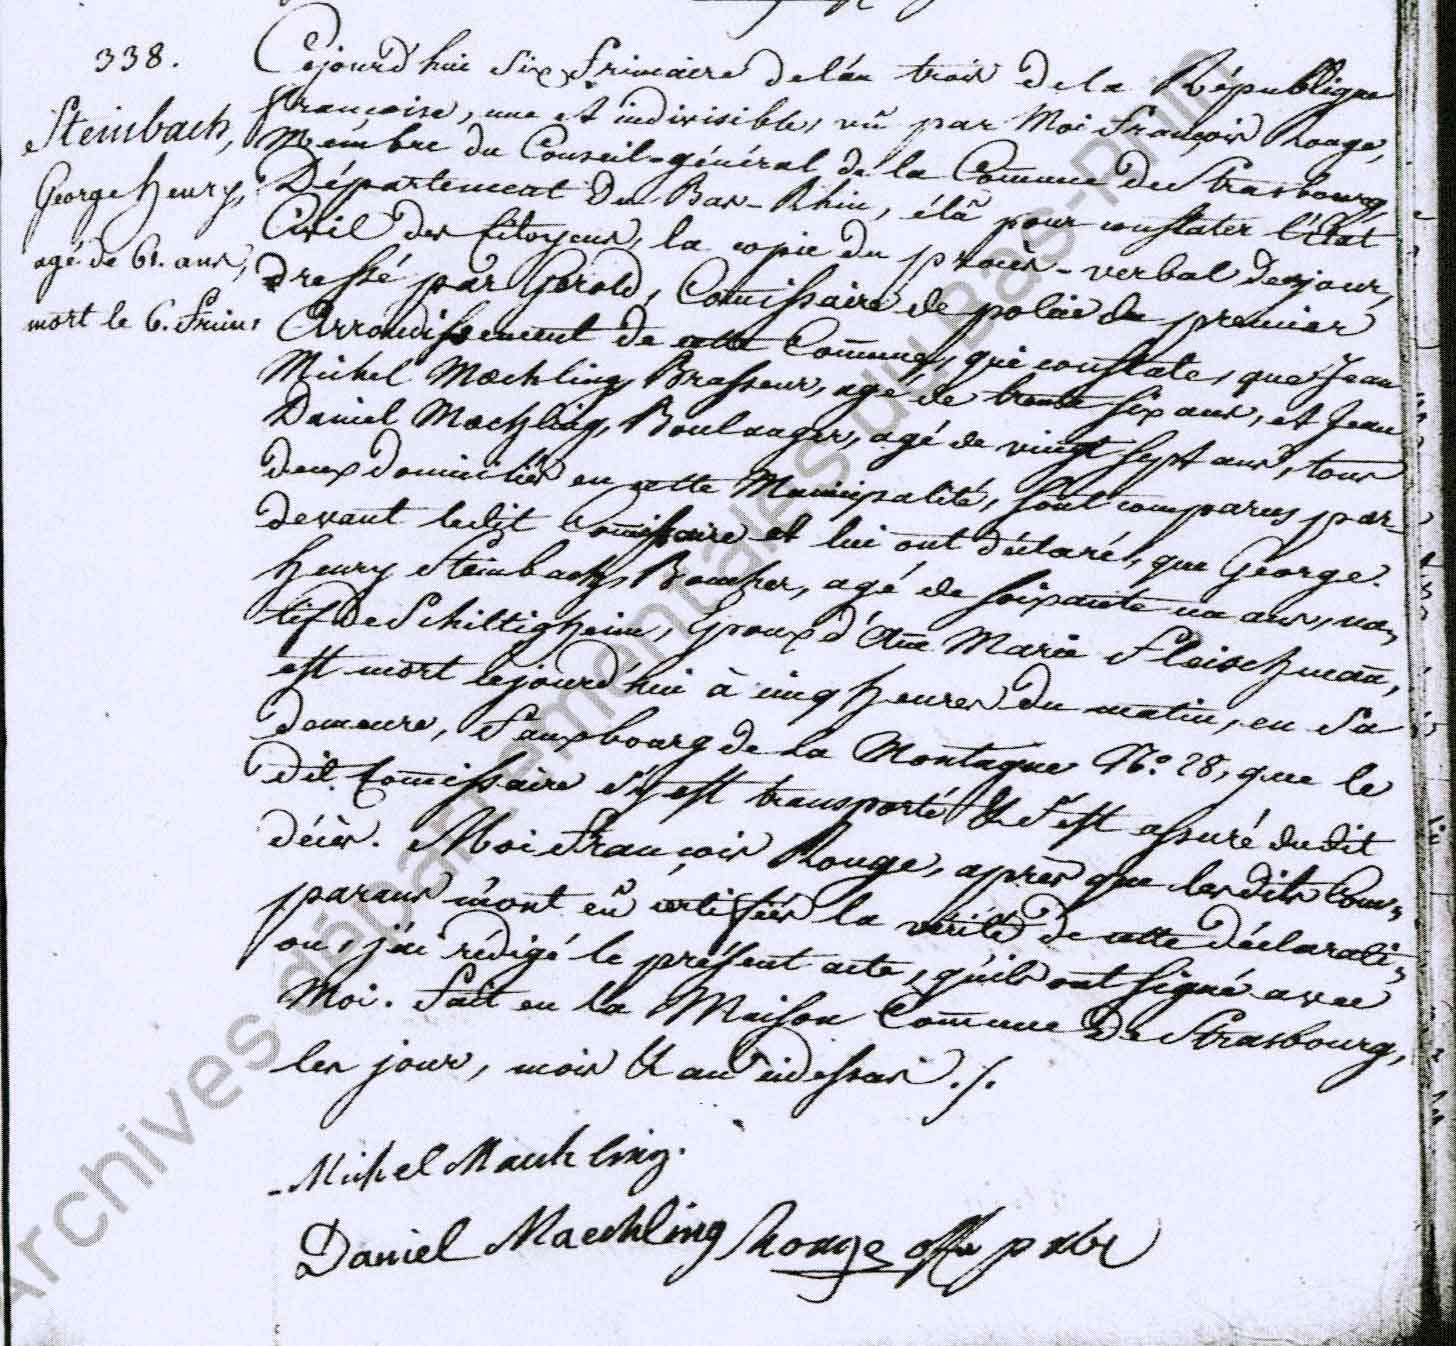 338.
Steinbach,
George henry,
agé de 61. ans,
mort le 6. Frim:
Cejourd'hui six frimaire de l'an trois de la République
françoise, une et indivisible, vû par Moi François Rouge,
Membre du Conseil-général de la Comune de Strasbourg,
Département du Bas-Rhin, élû pour constater l'Etat
Civil des Citoyens, la copie du procès-verbal de ce jour,
dressé par Gerold, Comissaire de police du premier
Arrondissement de cette Comune, qui constate, que Jean
Michel Moechling, Brasseur, agé de trente six ans, et Jean
Daniel Moechling, Boulanger, agé de vingt sept ans, tous
deux domiciliés en cette Municipalité, sont comparus par-
devant ledit Comissaire et lui ont déclaré, que George
henry Steinbach, Boucher, agé de soixante un ans, na-
tif de Schiltigheim, Epoux d'Ane Marie Fleischman,
est mort cejourd'hui à cinq heures du matin, en sa
demeure, Fauxbourg de la Montagne No. 28, que le
dit Comissaire s'y est transporté & s'est assuré dudit
décès. Moi François Rouge, après que lesdits Com-
parans m'ont eû certifiés la vérité de cette déclarati-
on, j'ai rédigé le présent acte, qu'ils ont signé avec
Moi. Fait en la Maison Comune de Strasbourg,
les jour, mois & an cidessus ./.
Michel Maechling.
Daniel Maechling Rouge off. publ
Archives départementales du Bas-Rhin